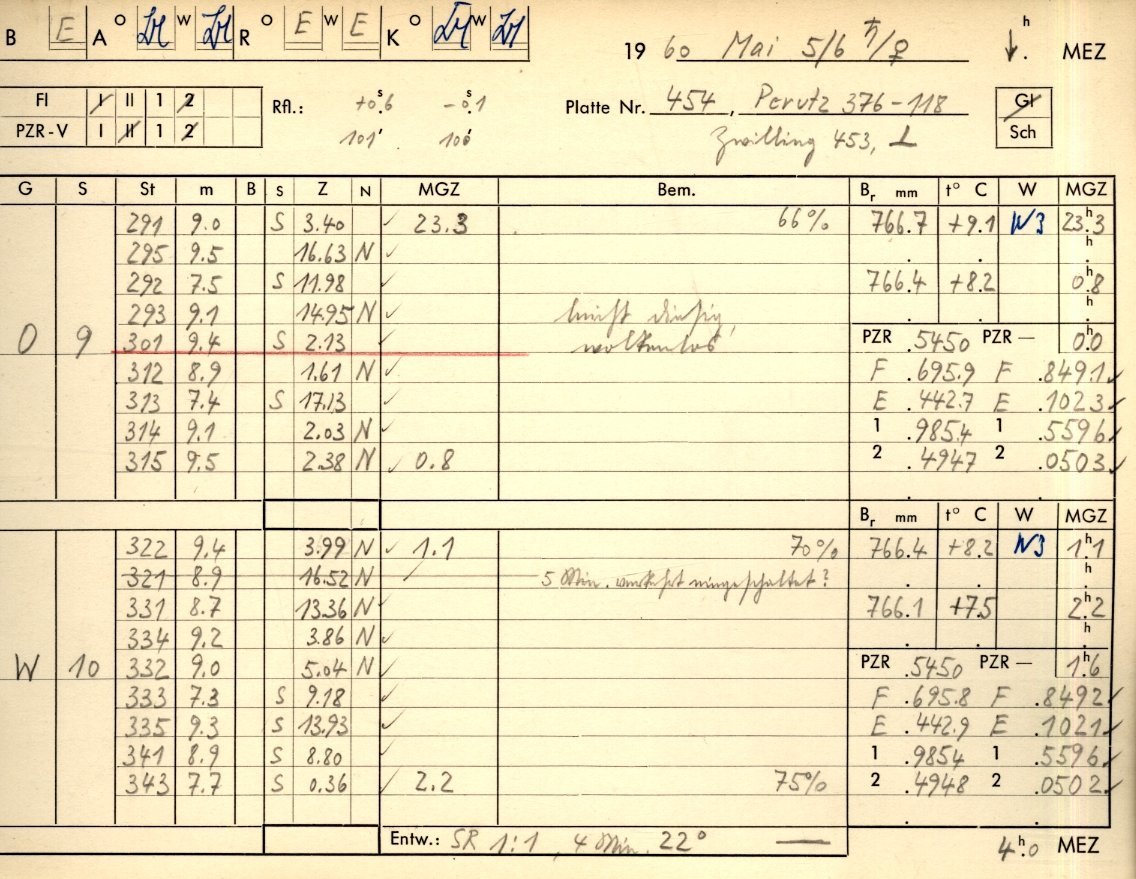 B E A O W R O E W E K O W
19 60 Mai 5/6 ♄/♀ h . MEZ
Fl I II 1 2
PZR-V I II 1 2
Rfl.: +0.ˢ6 -0.ˢ1
101' 100'
Platte Nr. 454, Perutz 376-118
Zwilling 453, L
Gl
Sch
G S St m B S Z N MGZ Bem. Bᵣ mm t° C W MGZ
291 9.0 S 3.40 ✓ 23.3 66% 766.7 +9.1 W3 23.ʰ3
295 9.5 16.63 N ✓ . . .ʰ
292 7.5 S 11.98 ✓ 766.4 +8.2 0.ʰ8
293 9.1 14.95 N ✓ leicht diesig, . . .ʰ
O 9 301 9.4 S 2.13 ✓ wolkenlos PZR .5450 PZR — 0.ʰ0
312 8.9 1.61 N ✓ F .695.9 F .849.1 ✓
313 7.4 S 17.13 ✓ E .442.7 E .102.3 ✓
314 9.1 2.03 N ✓ 1 .985.4 1 .559.6 ✓
315 9.5 2.38 N ✓ 0.8 2 .494.7 2 .050.3 ✓
Bᵣ mm t° C W MGZ
322 9.4 3.99 N ✓ 1.1 70% 766.4 +8.2 W3 1.ʰ1
321 8.9 16.52 N ✓ 5 Min. verkehrt eingeschaltet? . . .ʰ
331 8.7 13.36 N 766.1 +7.5 2.ʰ2
334 9.2 3.86 N ✓ . . .ʰ
W 10 332 9.0 5.04 N ✓ PZR .5450 PZR — 1.ʰ6
333 7.3 S 9.18 ✓ F .695.8 F .849.2 ✓
335 9.3 S 13.93 ✓ E .442.9 E .102.1 ✓
341 8.9 S 8.80 ✓ 1 .985.4 1 .559.6 ✓
343 7.7 S 0.36 ✓ 2.2 75% 2 .494.8 2 .050.2 ✓
Entw.: SR 1:1, 4 Min. 22° — 4.ʰ0 MEZ